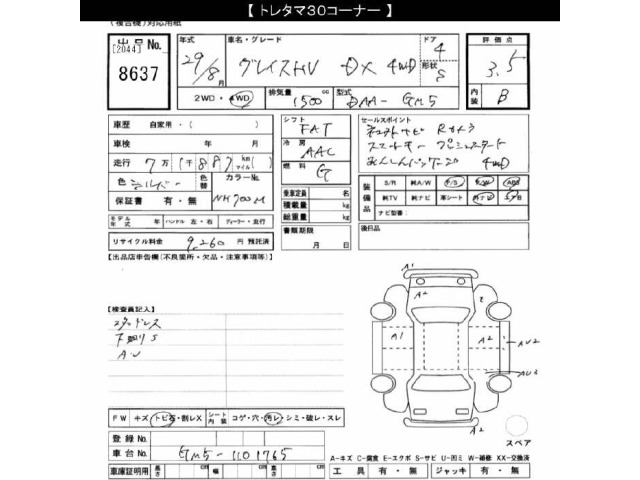 【 トレタマ30コーナー 】
(複合機) 対応用紙
出品No.
[2044]
8637
年式 29/8月
車名・グレード グレイスHV DX 4WD
ドア 4
形状 S
評価点 3.5
内装 B
2WD・4WD 排気量 1500 cc 型式 DAA-GM5
車歴 自家用・( )
車検 年 月
走行 7万(千887) km マイル
色 シルバー 色替 カラーNo. NH700M
保証書 有・無
シフト FAT
冷房 AAC
燃料 G
乗車定員 名
積載量 kg
総重量 kg
セールスポイント
Rカメラ
スマートキー プッシュスタート
あんしんパッケージ 4WD
装備品 S/R 純A/W P/S P/W ABS
純TV 純ナビ 革シート 外ナビ エアB
ナビ型番:
モデル年式 年 ハンドル 左・右 ディーラー・並行
書類期限 月 日
後日品
リサイクル料金 9,260 円 預託済
【出品店申告欄(不良箇所・欠品・注意事項等)】
A1
A2
【検査員記入】
スタッドレス
下廻りS
AU
E
A1
A2
AU2
AU3
FW キズ・トビ石・割レX シート内装 コゲ・穴・汚レ・シミ・破レ・スレ
登録No.
車台No. GM5-1101765
スペア
A-キズ C-腐食 E-エクボ S-サビ U-凹ミ W-補修 XX-交換済
車庫証明用 長さ cm 幅 cm 高さ cm 工具 有・無 ジャッキ 有・無